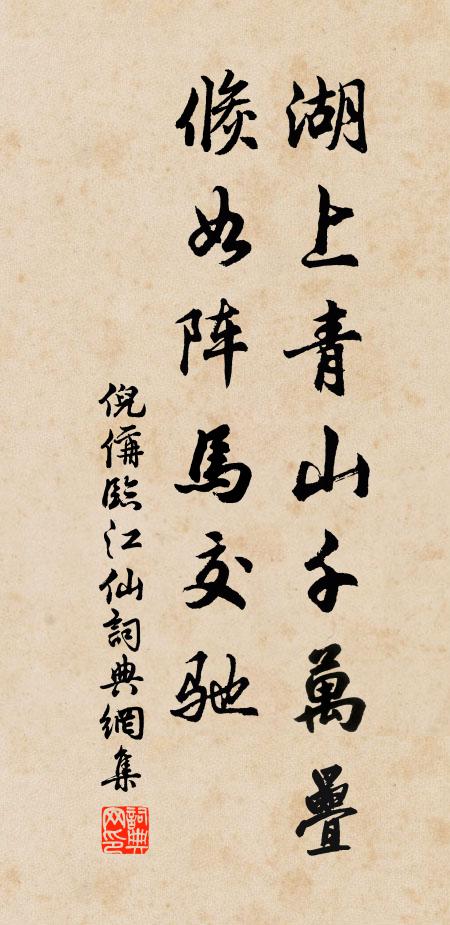 湖上青山千萬疊
倏如阵馬交驰
倪偁臨江仙詞典網集
詞典网印